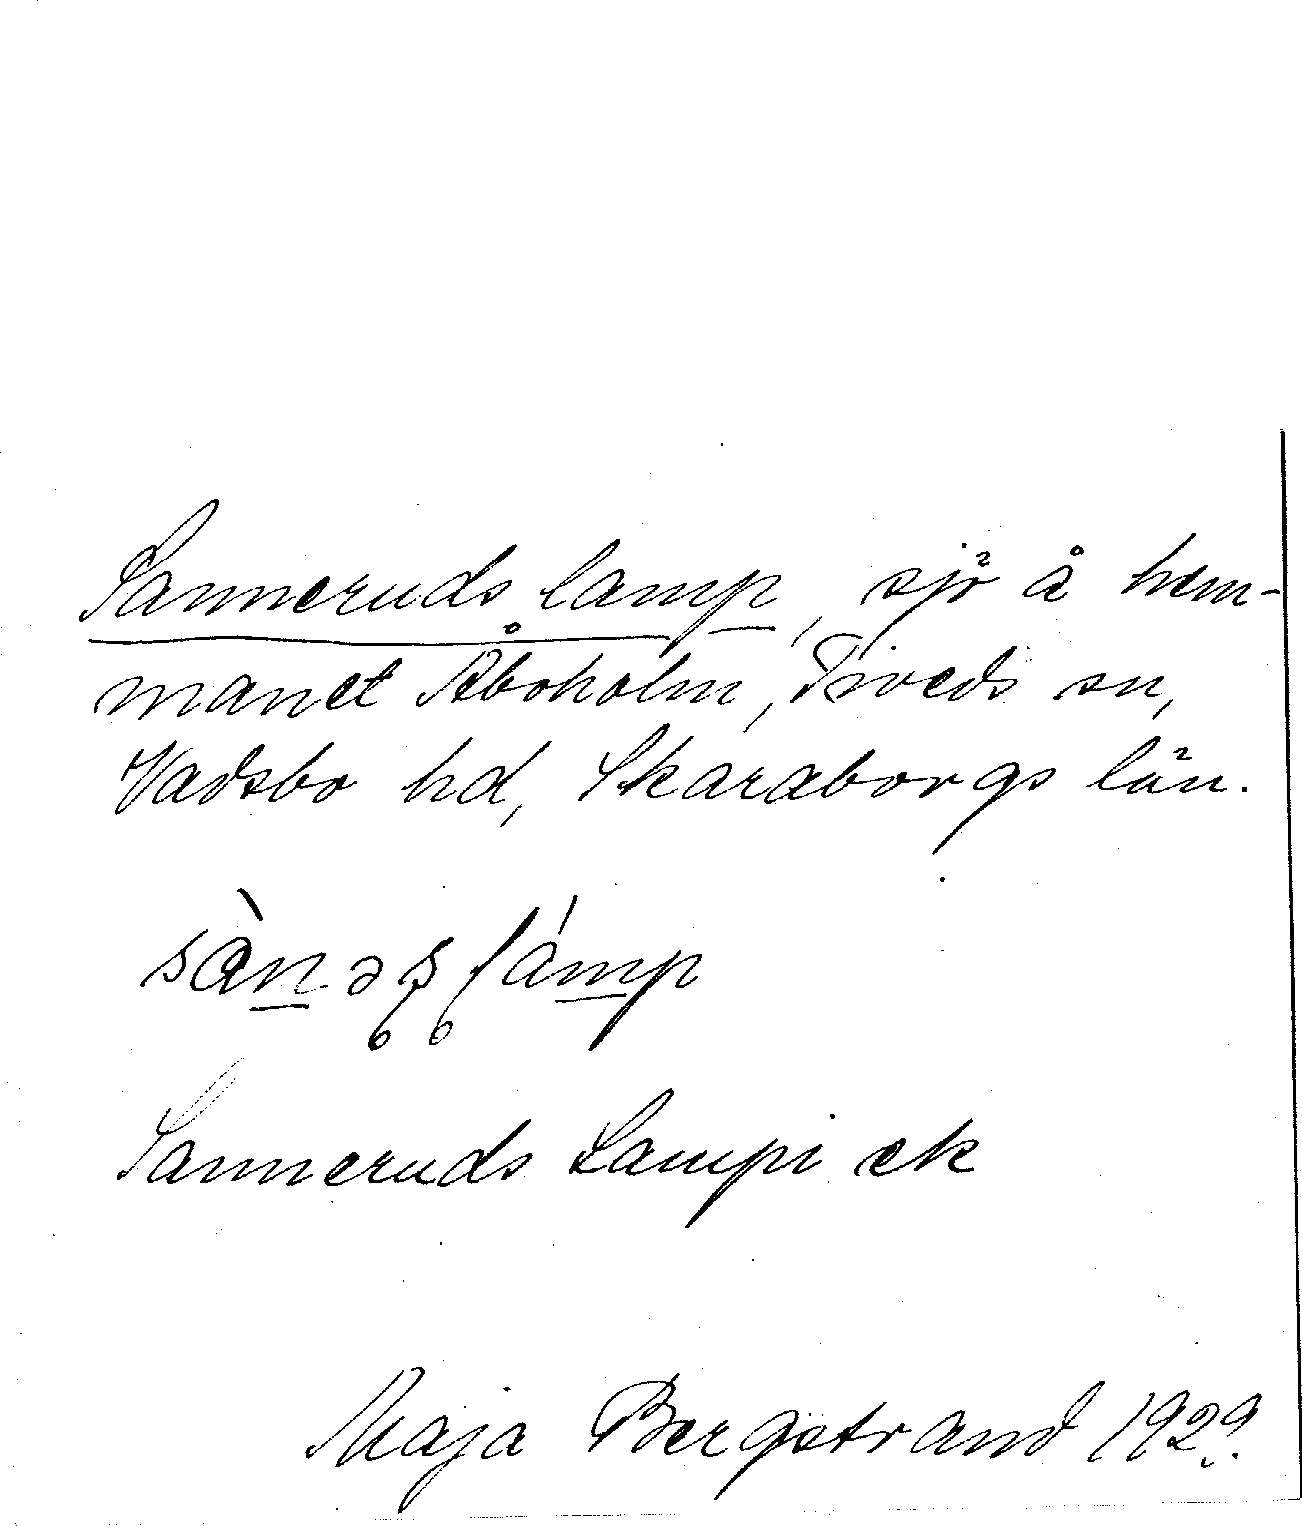 Sanneruds lamp, sjö å hem-
manet Åboholm, Tiveds sn,
Vadsbo hd, Skaraborgs län.
sànəʂ lámp
Sanneruds Lampi ek
Maja Bergstrand 1929.